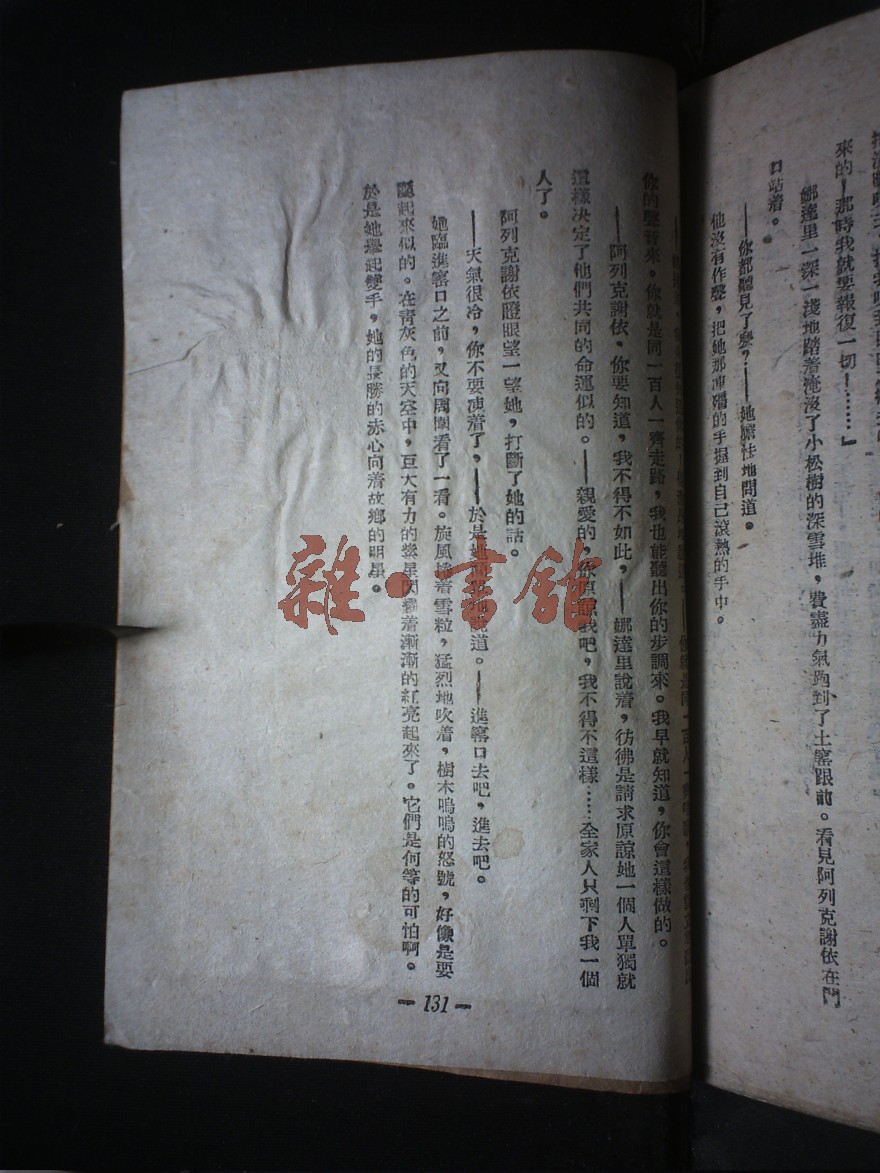 來的！那時我就要報復一切！……」
娜達里一深一淺地踏着淹沒了小松樹的深雪堆，費盡力氣跑到了土窰跟前。看見阿列克謝依在門
口站着。
——你都聽見了麽？——她膽怯地問道。
他沒有作聲，把她那凍殭的手握到自己滾熱的手中。
你的聲音來。你就是同一百人一齊走路，我也能聽出你的步調來。我早就知道，你會這樣做的。
——阿列克謝依，你要知道，我不得不如此，——娜達里說着，彷彿是請求原諒她一個人單獨就
這樣决定了他們共同的命運似的。——親愛的，你原諒我吧，我不得不這樣……全家人只剩下我一個
人了。
阿列克謝依瞪眼望一望她，打斷了她的話。
——天氣很冷，你不要凍着了，——於是她簡單地說道。——進窰口去吧，進去吧。
她臨進窰口之前，又向周圍看了一看。旋風捲着雪粒，猛烈地吹着，樹木嗚嗚的怒號，好像是要
起來似的。在靑灰色的天空中，巨大有力的羣星閃着漸漸的紅亮起來了。它們是何等的可怕啊。
於是她舉起雙手，她的長勝的赤心向着故鄉的明星。
— 131 —
雜·書館